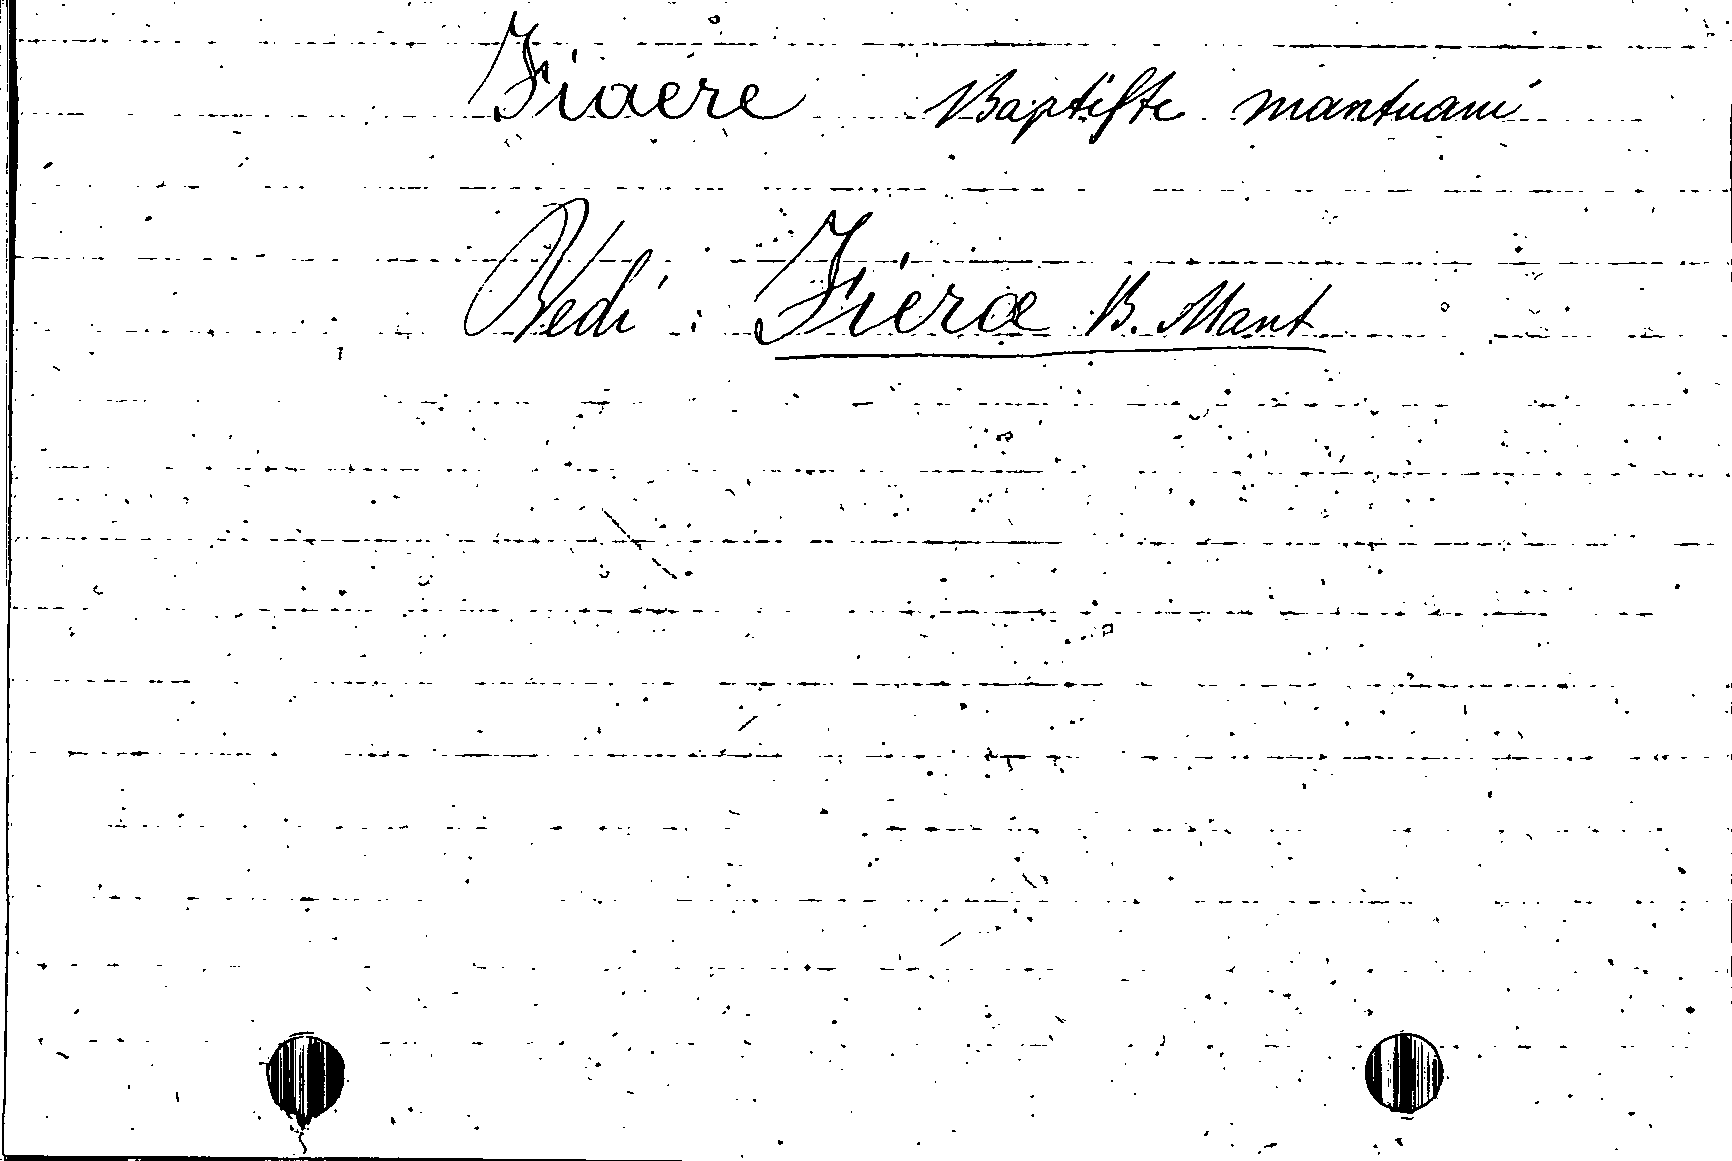 Fiaere Baptiste mantuani
Vedi : Fieræ B. Mant